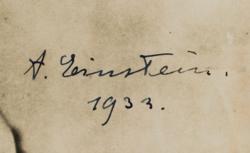 A. Einstein.
1933.